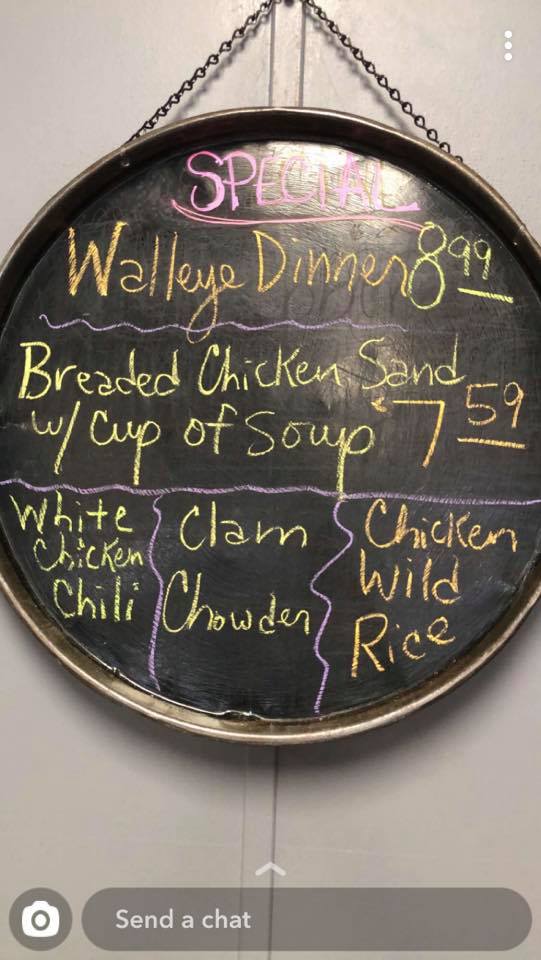 SPECIAL
Walleye Dinner 8 99
Breaded Chicken Sand
w/ Cup of Soup 7 59
White
Chicken
Chili
Clam
Chowder
Chicken
Wild
Rice
Send a chat